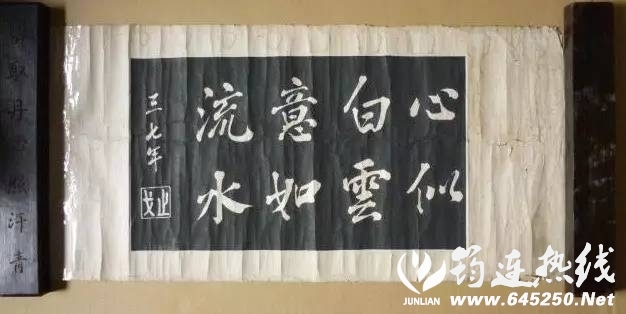 心似
白雲
意如
流水
三七年
止戈
取丹心照汗青
筠连热线
JUNLIAN www.645250.Net